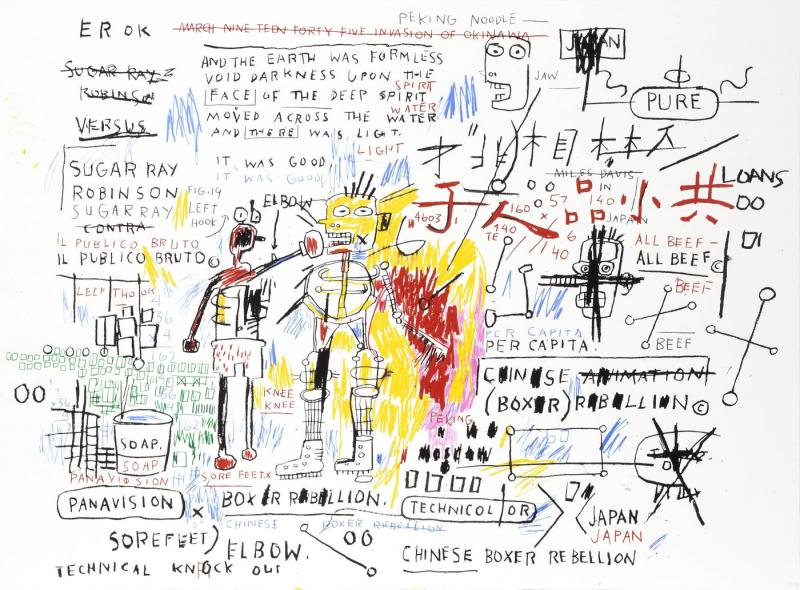 PEKING NOODLE
EROK
MARCH NINE TEEN FORTY FIVE INVASION OF OKINAWA
SUGAR RAY
ROBINSON
VERSUS
AND THE EARTH WAS FORMLESS
VOID DARKNESS UPON THE
FACE OF THE DEEP SPIRIT
SPIRIT
MOVED ACROSS THE WATER
WATER
AND THERE WAS LIGHT.
LIGHT
IT WAS GOOD
IT WAS GOOD
JAW
JAPAN
PURE
SUGAR RAY
ROBINSON
SUGAR RAY
CONTRA
IL PUBLICO BRUTO
IL PUBLICO BRUTO©
FIG.19
LEFT
HOOK
ELBOW
MILES DAVIS
IN
JAPAN
于人品小共
4603
160
57
140
x 6
140
TE
140
LOANS
00
ALL BEEF -
ALL BEEF©
BEEF
BEEF
PER CAPITA
PER CAPITA.
CHINESE ANIMATION
(BOXER) REBELLION©
KNEE
KNEE
PEKING
MOSCOW
00
SOAP.
SOAP
PANAVISION
SORE FEET.X
PANAVISION x BOXER REBELLION.
CHINESE BOXER REBELLION
TECHNICOLOR
JAPAN
JAPAN
SOREFEET) ELBOW.
00
TECHNICAL KNOCK OUT
CHINESE BOXER REBELLION